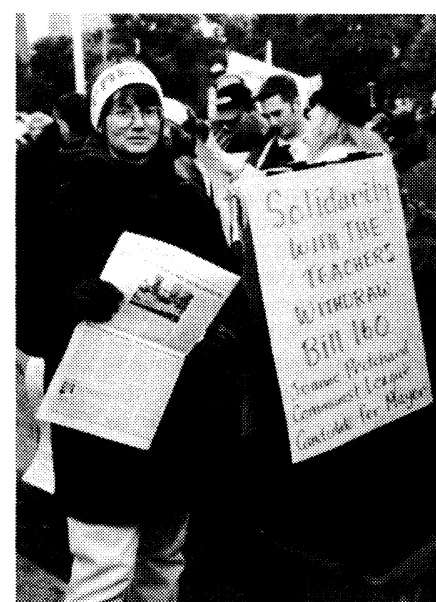 Solidarity
WITH THE
TEACHERS
WITHDRAW
Bill 160
Joanne Pritchard
Communist League
Candidate for Mayor